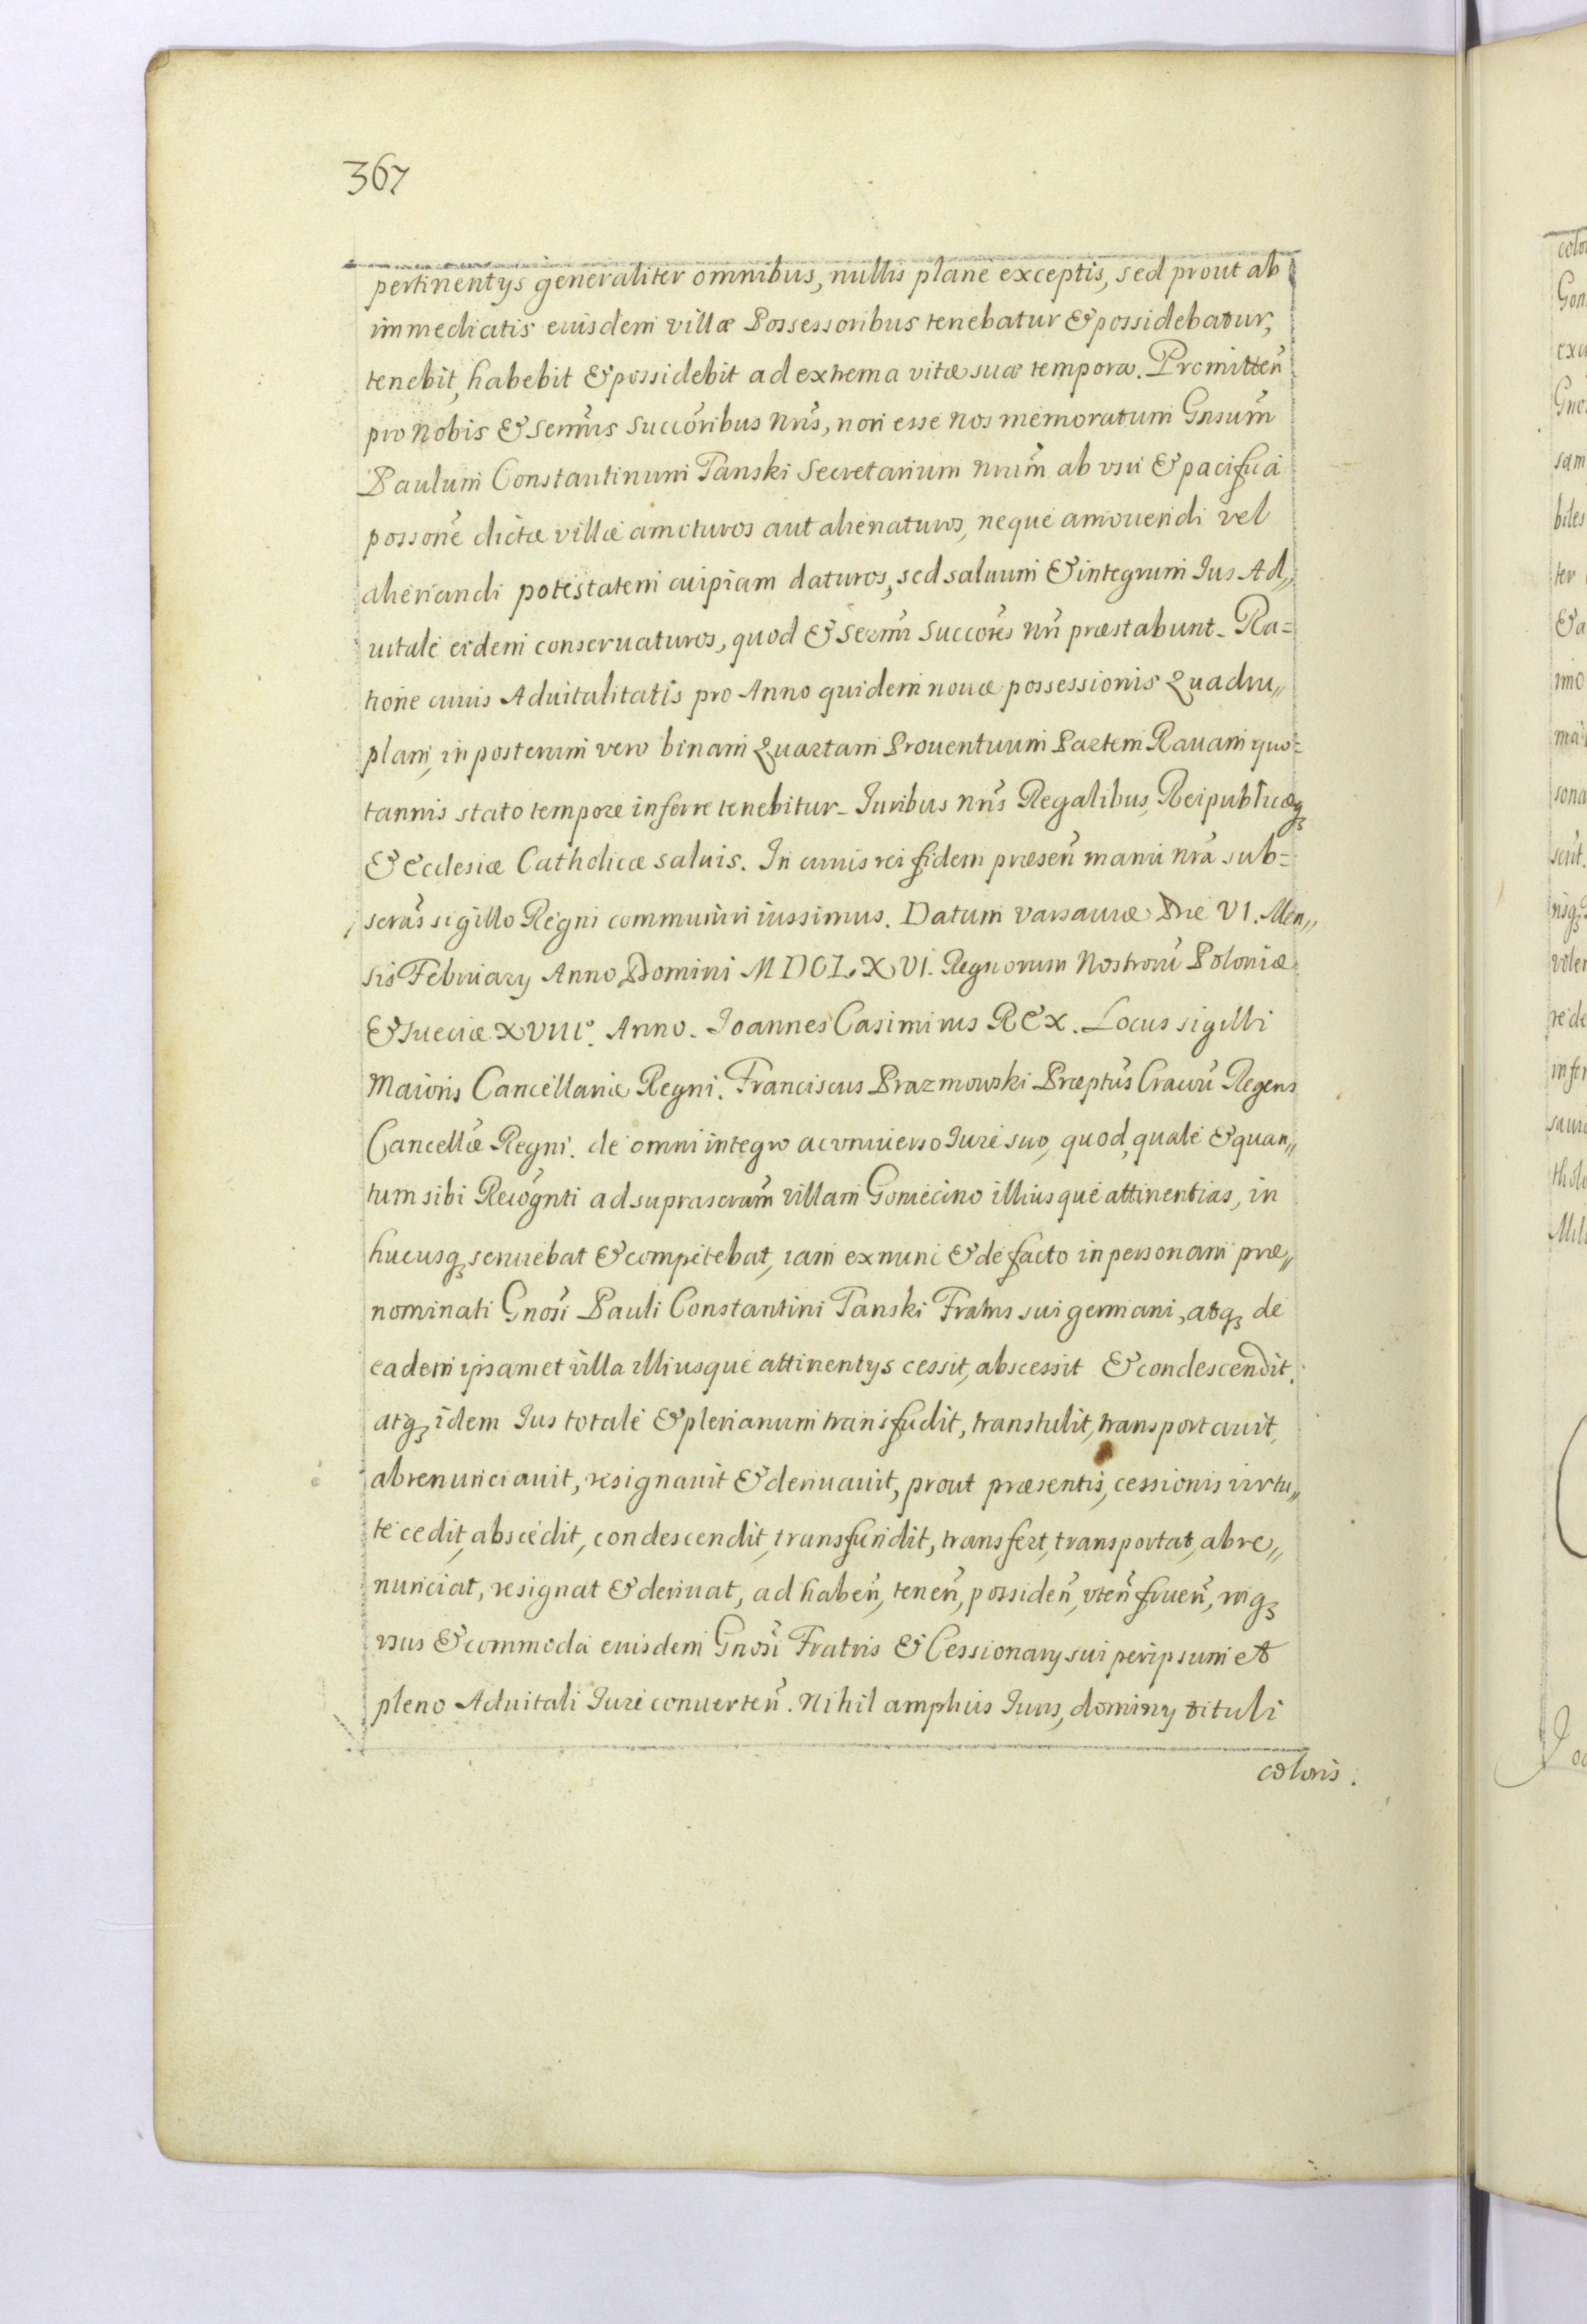 367
pertinentys generaliter omnibus, nullis plane exceptis, sed prout ab
immediatis euisdem villæ Possessoribus tenebatur & possidebatur,
tenebit, habebit & possidebit ad extrema vitæ suæ tempora. Promitteñ
pro Nobis & Sermis Succoribus Nris, non esse nos memoratum Gnsum
Paulum Constantinum Tanski Secretarium Nrum ab vsu & pacifica
possone dictæ villæ amoturos aut alienaturos, neque amouendi vel
alienandi potestatem cuipiam daturos, sed saluum & integrum Jus Ad„
uitale eidem conseruaturos, quod & Sermi Succores Nri præstabunt. Ra=
tione cuius Aduitalitatis pro Anno quidem nouæ possessionis Quadru„
plam, in posterum vero binam Quartam Prouentuum Partem Rauam quo=
tannis stato tempore inferre tenebitur. Juribus Nris Regalibus, Reipublicæq3
& Ecclesiæ Catholicæ saluis. In cuius rei fidem præseñ manu nra sub=
scras sigillo Regni communiri iussimus. Datum Varsauiæ Die VI. Men„
sis February Anno Domini MDCLXVI. Regnorum Nostrorũ Poloniæ
& Sueciæ XVIII°. Anno. Joannes Casimirus REX. Locus sigilli
Maioris Cancellariæ Regni. Franciscus Prazmowski Præptus Cracou Regens
Cancellæ Regni. de omni integro ac vniuerso Jure suo, quod, quale & quan„
tum sibi Recognti ad suprascram villam Goniecino illiusque attinentias, in
hucusq3 seruiebat & competebat, iam ex nunc & de facto in personam præ„
nominati Gnosi Pauli Constantini Tanski Fratris sui germani, atq3 de
eadem ipsamet villa illiusque attinentys cessit, abscessit & condescendit.
atq3 idem Jus totale & plenarium transfudit, transtulit, transportauit,
abrenunciauit, resignauit & deriuauit, prout præsentis, cessionis virtu„
te cedit, abscedit, condescendit, transfundit, transfert, transportat, abre„
nunciat, resignat & deriuat, ad habeñ, teneñ, possideñ, vteñ frueñ, inq3
vsus & commoda euisdem Gnosi Fratris & Cessionary sui per ipsum et
pleno Aduitali Jure conuerteñ. Nihil amplius Juris, dominy tituli
coloris.